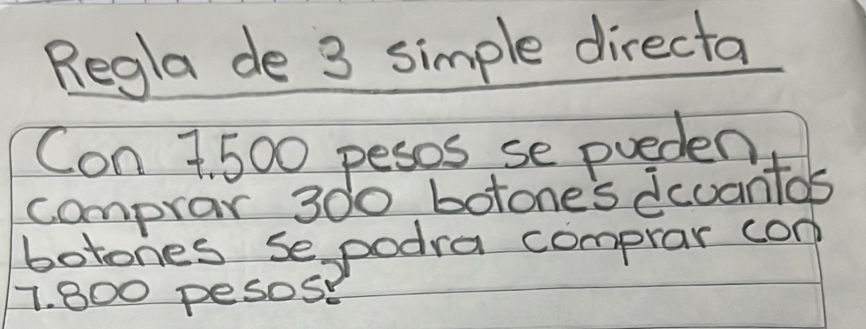 Regla de 3 simple directa
Con 7.500 pesos se pueden
comprar 300 botones ¿cuantos
botones se podra comprar con
7.800 pesos?